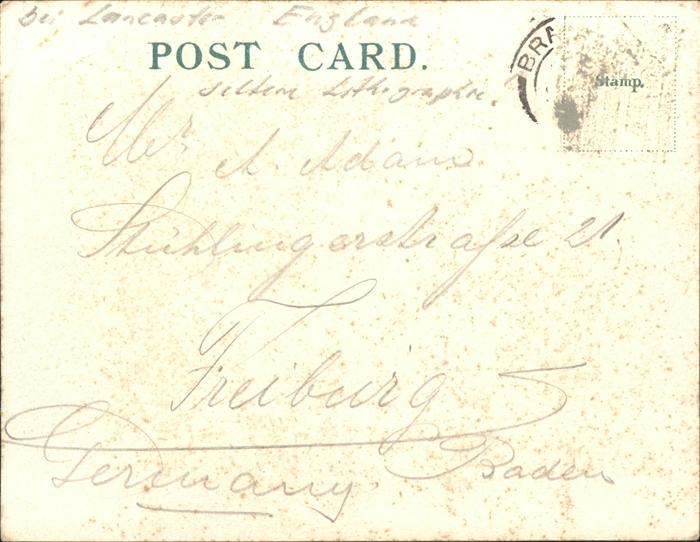 bei Lancaster England
POST CARD.
BRA
Stamp.
seltene Lithographie.
Mr. A. Adams
Stühlingerstraße 21.
Freiburg
Germany. Baden